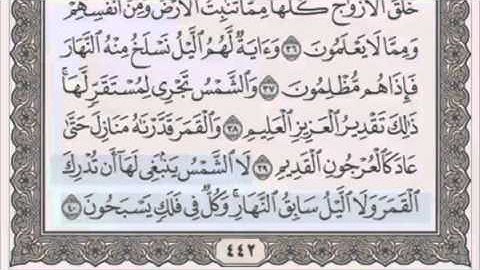 خَلَقَ ٱلْأَزْوَٰجَ كُلَّهَا مِمَّا تُنۢبِتُ ٱلْأَرْضُ وَمِنْ أَنفُسِهِمْ
وَمِمَّا لَا يَعْلَمُونَ ٣٦ وَءَايَةٌ لَّهُمُ ٱلَّيْلُ نَسْلَخُ مِنْهُ ٱلنَّهَارَ
فَإِذَا هُم مُّظْلِمُونَ ٣٧ وَٱلشَّمْسُ تَجْرِى لِمُسْتَقَرٍّ لَّهَا ۚ
ذَٰلِكَ تَقْدِيرُ ٱلْعَزِيزِ ٱلْعَلِيمِ ٣٨ وَٱلْقَمَرَ قَدَّرْنَٰهُ مَنَازِلَ حَتَّىٰ
عَادَ كَٱلْعُرْجُونِ ٱلْقَدِيمِ ٣٩ لَا ٱلشَّمْسُ يَنۢبَغِى لَهَآ أَن تُدْرِكَ
ٱلْقَمَرَ وَلَا ٱلَّيْلُ سَابِقُ ٱلنَّهَارِ ۚ وَكُلٌّ فِى فَلَكٍ يَسْبَحُونَ ٤٠
٤٤٢